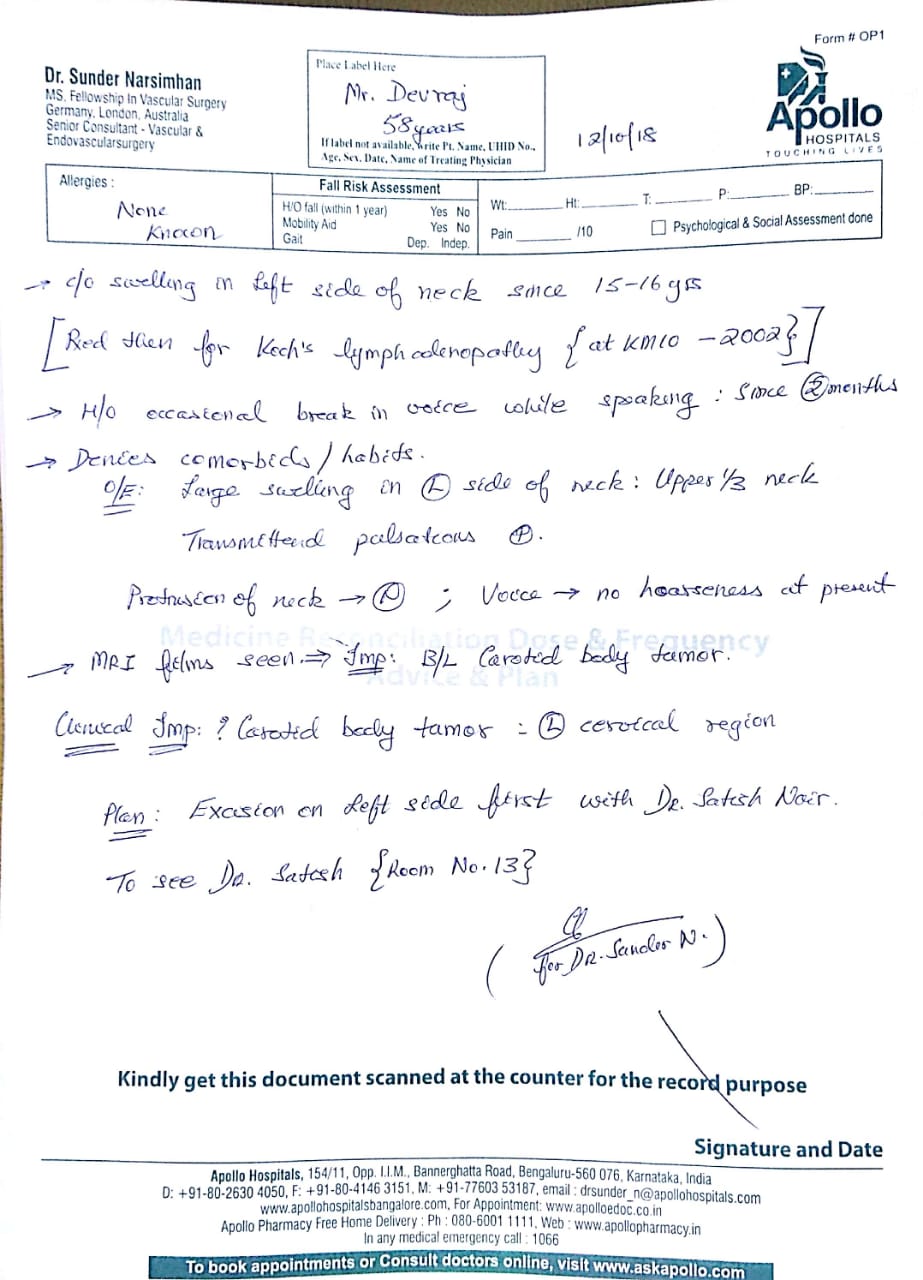 Form # OP1
Dr. Sunder Narsimhan
MS, Fellowship In Vascular Surgery
Germany, London, Australia
Senior Consultant - Vascular &
Endovascularsurgery
Place Label Here
Mr. Devraj
58 years
If label not available, Write Pt. Name, UHID No.,
Age, Sex, Date, Name of Treating Physician
12/10/18
Apollo
HOSPITALS
TOUCHING LIVES
Allergies :
None
Known
Fall Risk Assessment
H/O fall (within 1 year) Yes No
Mobility Aid Yes No
Gait Dep. Indep.
Wt: Ht: T: P: BP:
Pain /10 Psychological & Social Assessment done
→ c/o swelling in left side of neck since 15-16 yrs
[Rxed then for Koch's lymphadenopathy {at KMIO - 2002}]
→ H/O occasional break in voice while speaking : Since 2 months
→ Denies comorbids / habits.
O/E: Large swelling in (L) side of neck : Upper 1/3 neck
Transmittend pulsations (+).
Protrusion of neck → (N) ; Voice → no hoarseness at present
Medicine Reconciliation Dose & Frequency
Advice & Plan
→ MRI films seen. ⇒ Imp: B/L Carotid body tumor.
Clinical Imp: ? Carotid body tumor : (L) cervical region
Plan : Excision on left side first with Dr. Satish Nair.
To see Dr. Satish {Room No. 13}
(for DR. Sunder N.)
Kindly get this document scanned at the counter for the record purpose
Signature and Date
Apollo Hospitals, 154/11, Opp. I.I.M., Bannerghatta Road, Bengaluru-560 076, Karnataka, India
D: +91-80-2630 4050, F: +91-80-4146 3151, M: +91-77603 53187, email : drsunder_n@apollohospitals.com
www.apollohospitalsbangalore.com, For Appointment: www.apolloedoc.co.in
Apollo Pharmacy Free Home Delivery : Ph : 080-6001 1111, Web : www.apollopharmacy.in
In any medical emergency call : 1066
To book appointments or Consult doctors online, visit www.askapollo.com